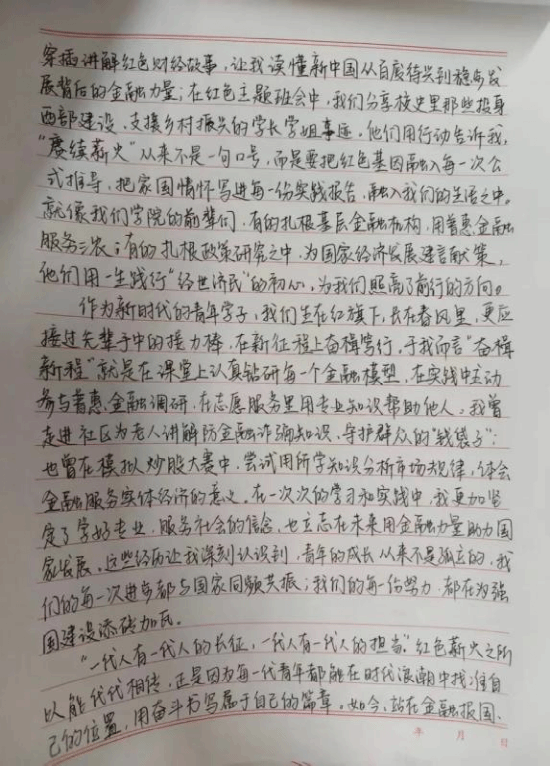 穿插讲解红色财经故事，让我读懂新中国从百废待兴到稳步发
展背后的金融力量；在红色主题班会中，我们分享校史里那些投身
西部建设、支援乡村振兴的学长学姐事迹，他们用行动告诉我，
“赓续薪火”从来不是一句口号，而是要把红色基因融入每一次公
式推导，把家国情怀写进每一份实践报告，融入我们的生活之中。
就像我们学院的前辈们，有的扎根基层金融机构，用普惠金融
服务三农；有的扎根政策研究之中，为国家经济发展建言献策，
他们用一生践行“经世济民”的初心，为我们照亮了前行的方向。
作为新时代的青年学子，我们生在红旗下，长在春风里，更应
接过先辈手中的接力棒，在新征程上奋楫笃行。于我而言“奋楫
新程”就是在课堂上认真钻研每一个金融模型，在实践中主动
参与普惠金融调研，在志愿服务里用专业知识帮助他人。我曾
走进社区为老人讲解防金融诈骗知识，守护群众的“钱袋子”；
也曾在模拟炒股大赛中，尝试用所学知识分析市场规律，体会
金融服务实体经济的意义。在一次次的学习和实践中，我更加坚
定了学好专业、服务社会的信念，也立志在未来用金融力量助力国
家发展。这些经历让我深刻认识到，青年的成长从来不是孤立的，我
们的每一次进步都与国家同频共振；我们的每一份努力，都在为强
国建设添砖加瓦。
“一代人有一代人的长征，一代人有一代人的担当。”红色薪火之所
以能代代相传，正是因为每一代青年都能在时代浪潮中找准自
己的位置，用奋斗书写属于自己的篇章。如今，站在金融报国、
年 月 日